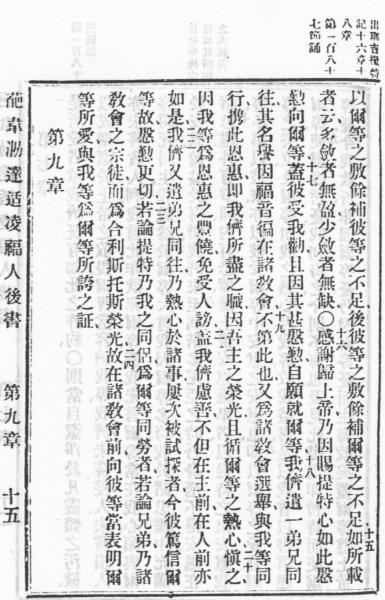 出耶吉撥特
記十六章十
八章
第一百八十
七節誦
以爾等之敷餘補彼等之不足後彼等之敷餘補爾等之不足十五如所載
者云多斂者無盈少斂者無缺〇十六感謝歸上帝乃因賜提特心如此慇
懃向爾等十七蓋彼受我勸且因其甚慇懃自願就爾等十八我儕遣一弟兄同
往其名譽因福音徧在諸敎會十九不第此也又爲諸敎會選舉與我等同
行攜此恩惠卽我儕所盡之職因吾主之榮光且循爾等之熱心二十愼之
因我等爲恩惠之豐饒免受人謗二一蓋我儕慮善不但在主前在人前亦
如是二二我儕又遣弟兄同往乃熱心於諸事屢次被試探者今彼篤信爾
等故慇懃更切二三若論提特乃我之同侶爲爾等同勞者若論兄弟乃諸
敎會之宗徒而爲合利斯托斯榮光二四故在諸敎會前向彼等當表明爾
等所愛與我等爲爾等所誇之証
第九章
葩韋泐達适凌福人後書 第九章 十五